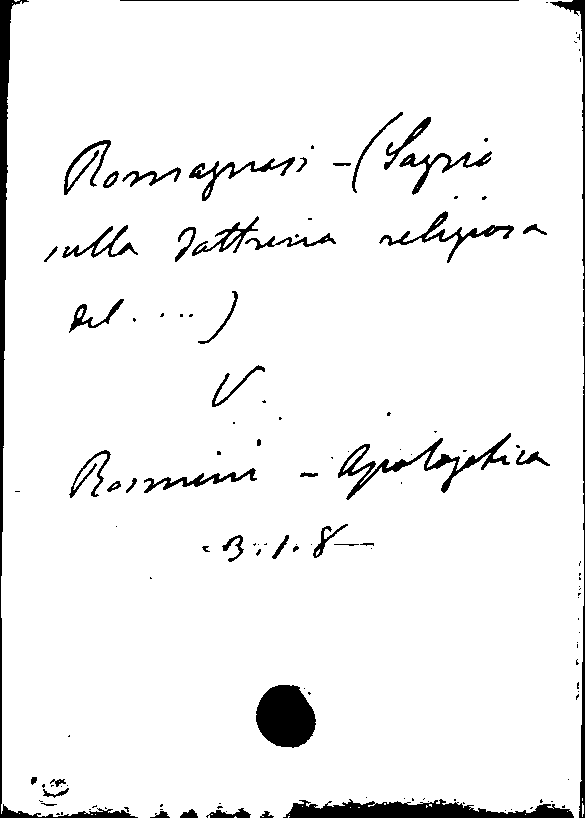 Romagnosi - (Saggio
sulla dottrina religiosa
del ....)
V.
Rosmini - Apologetica
3.1.8